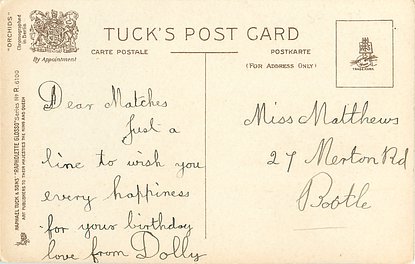 TUCK'S POST CARD
CARTE POSTALE
POSTKARTE
(FOR ADDRESS ONLY)
By Appointment
"ORCHIDS"
Chromographed in Berlin
RAPHAEL TUCK & SONS' "RAPHOLETTE GLOSSO" Series No R. 6100
ART PUBLISHERS TO THEIR MAJESTIES THE KING AND QUEEN
TRADE MARK
Dear Matches
Just a
line to wish you
every happiness
for your birthday
love from Dolly
Miss Matthews
27 Merton Rd
Bootle